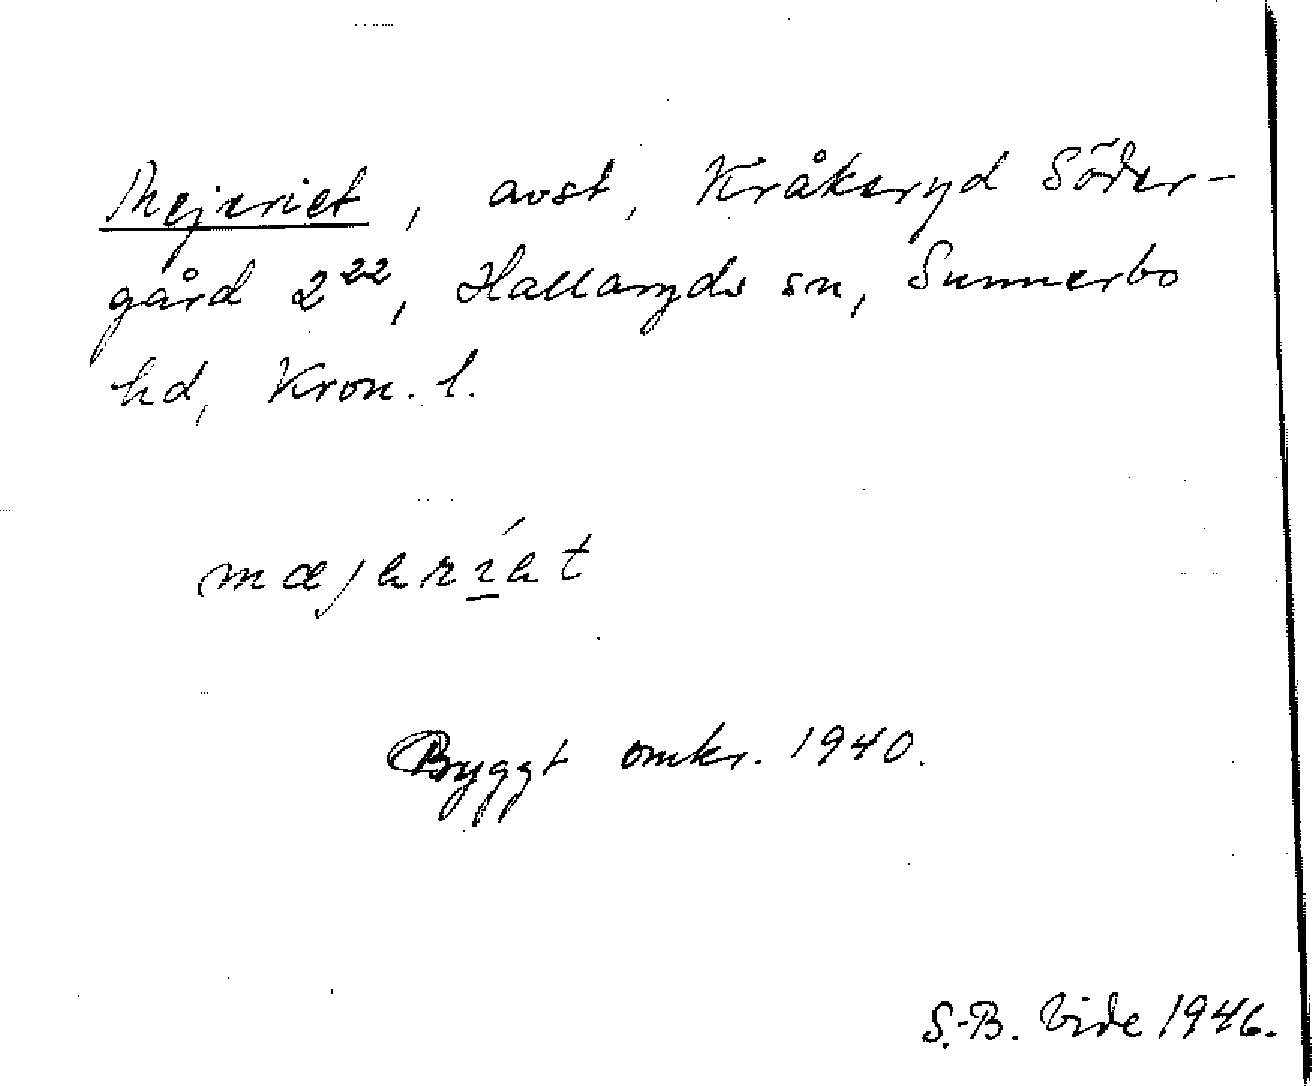 Mejeriet, avst, Kråkeryd Söder-
gård 2²², Hallaryds sn, Sunnerbo
hd, Kron. l.
mæjarı́at
Byggt omkr. 1940.
S.-B. Vide 1946.